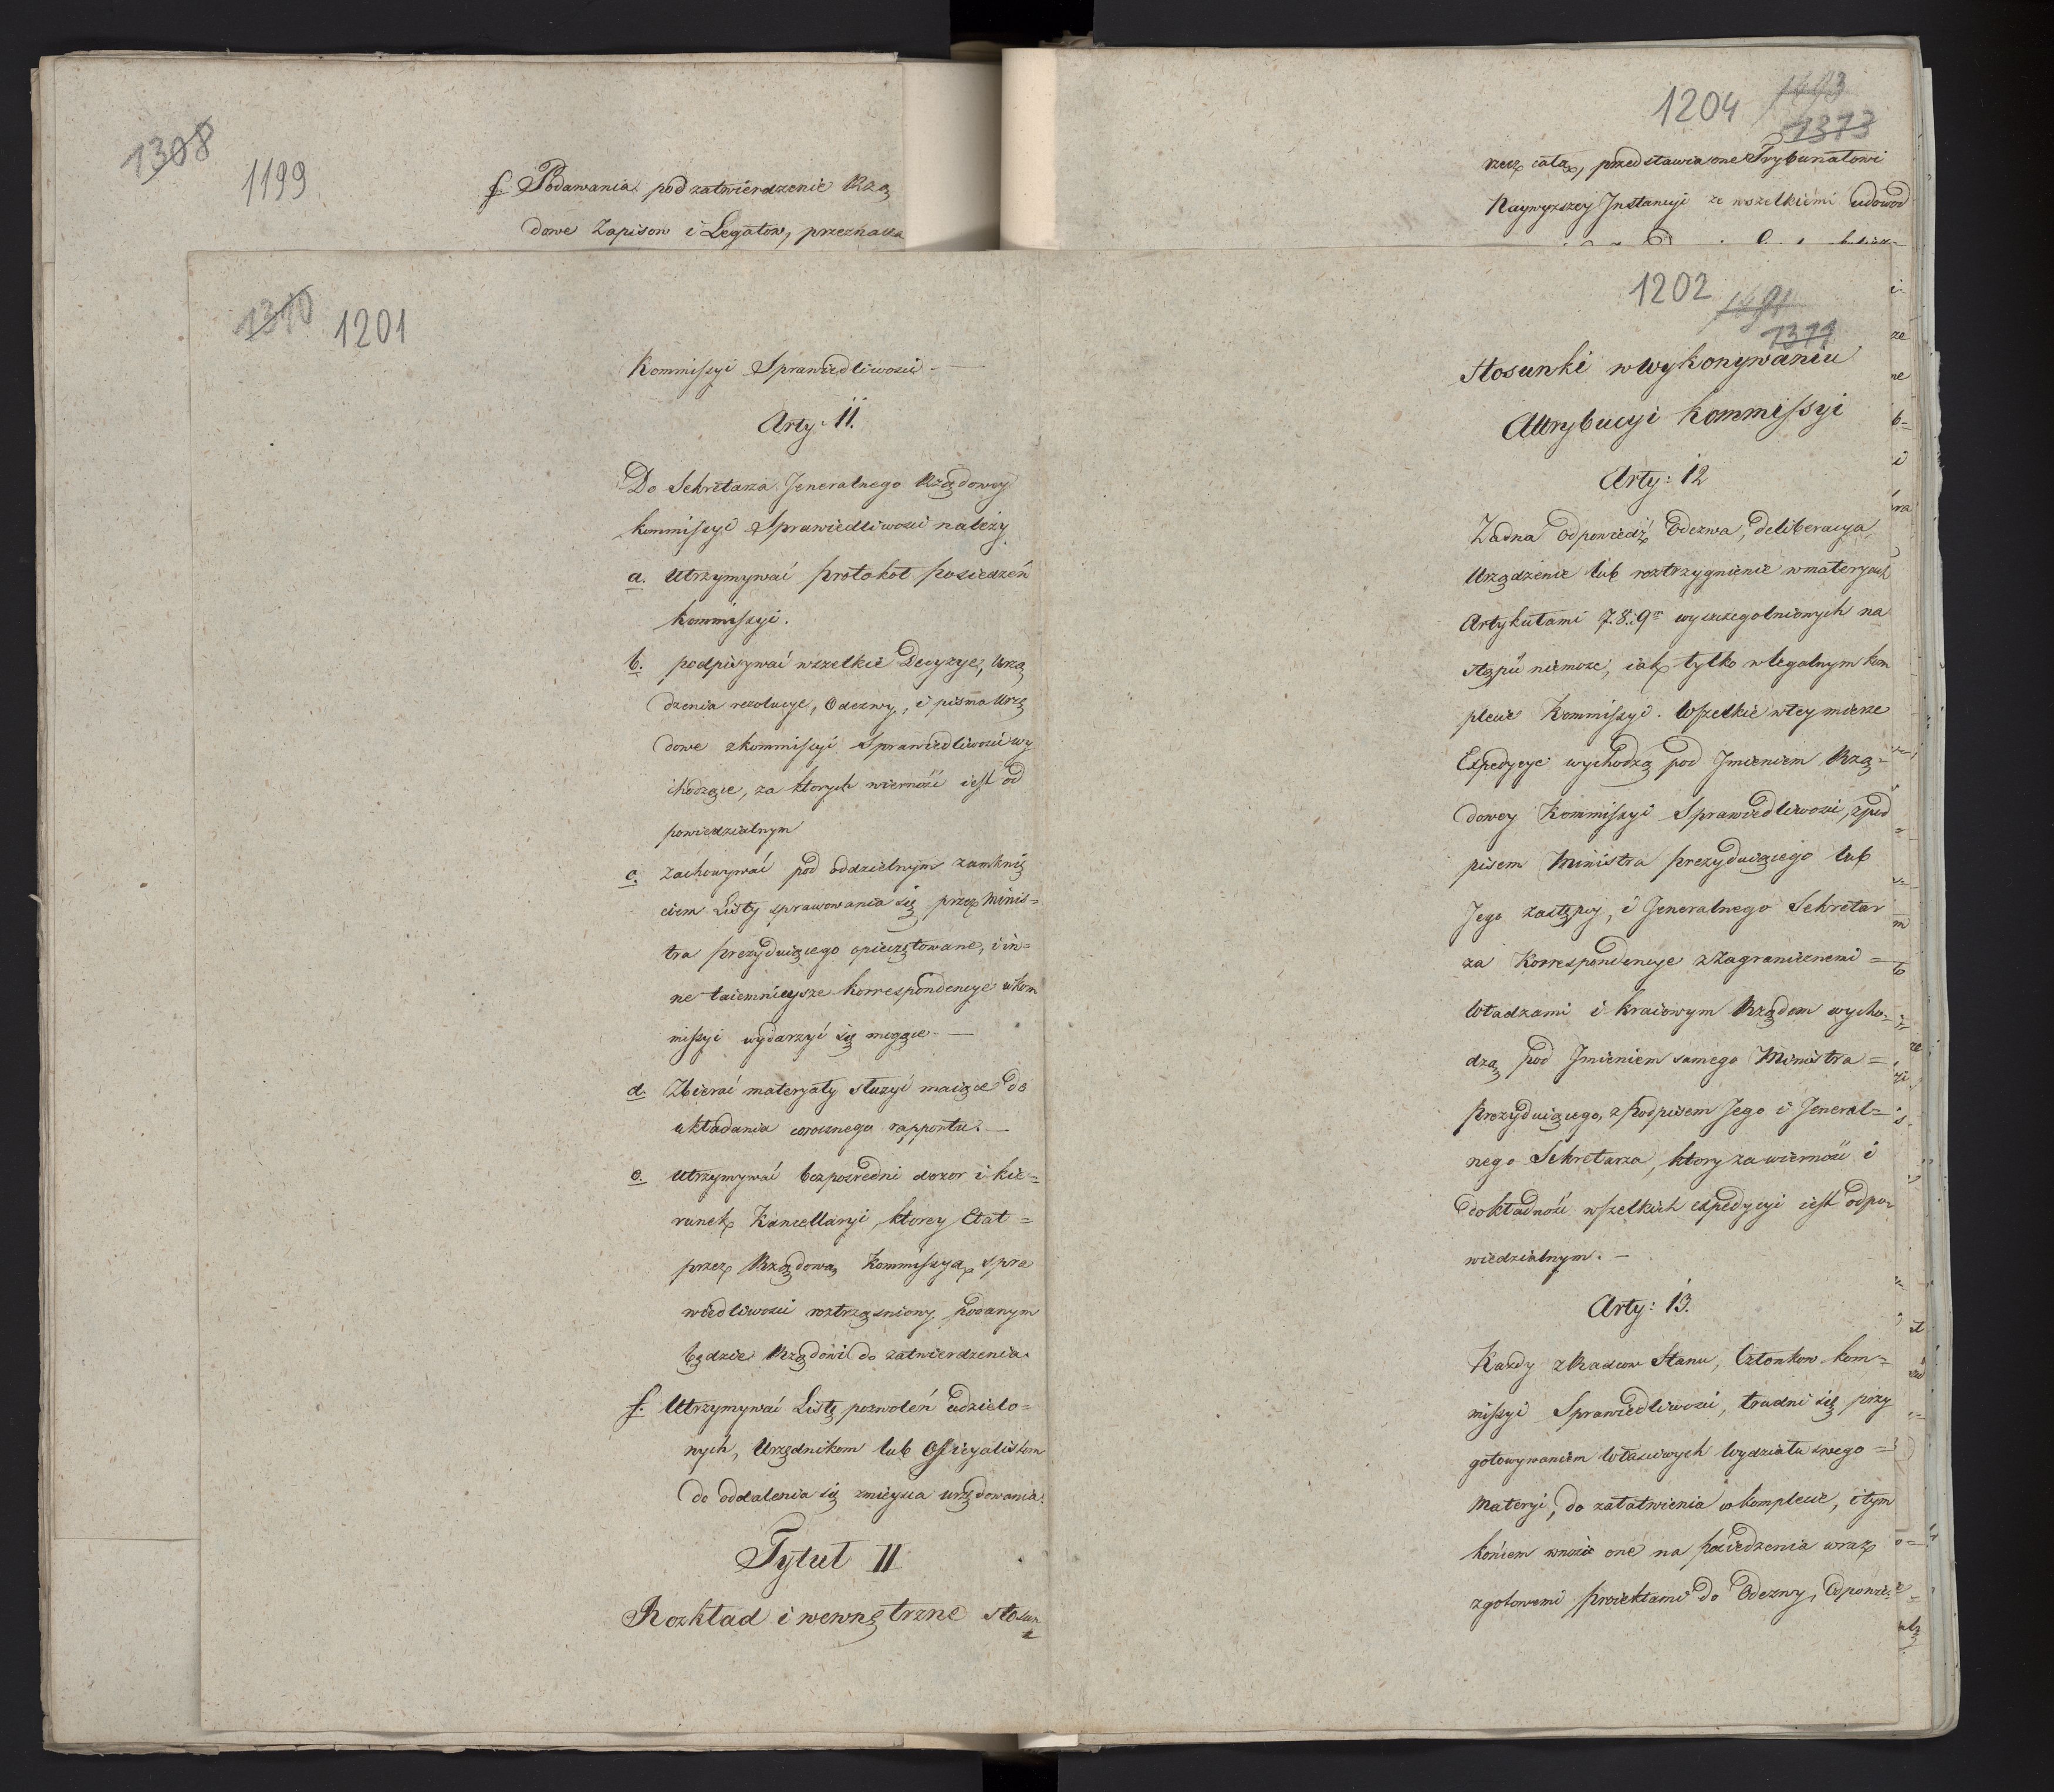 1308
1199
f. Podawania pod zatwierdzenie Rzą
dowe Zapisow i Legatow, przeznacza
1204
1373
rzecz całą, przedstawia one Trybunałowi
Naywyższey Instancyi ze wszelkiemi udowod
1310 1201
Kommissyi Sprawiedliwości. —
Arty: 11.
Do Sekretarza Jeneralnego Rządowey
kommissyi Sprawiedliwości należy
a. Utrzymywać protokoł posiedzeń
kommissyi.
b. podpisywać wszelkie Decyzye, Urzą
dzenia rezolucye, Odezwy, i pisma Urzę
dowe z kommissyi Sprawiedliwości wy
chodzące, za ktorych wierność iest od
powiedzialnym
c. zachowywać pod oddzielnym zamknię
ciem Listy sprawowania się przez Minis=
tra prezyduiącego opieczętowane, i in=
ne taiemnieysze korrespondencye w kom
missyi wydarzyć się mogące. —
d. Zbierać materyały służyć maiące do
układania corocznego rapportu. —
e. Utrzymywać bezpośredni dozor i kie=
runek Kancellaryi, ktorey Etat =
przez Rządową Kommissyą Spra
wiedliwości roztrząśniony podanym
będzie Rządowi do zatwierdzenia.
f. Utrzymywać Listę pozwoleń udzielo=
nych, Urzędnikom lub Officyalistom
do oddalenia się z mieysca urzędowania.
Tytuł II
Rozkład i wewnętrzne stosun
1202
1371
Stosunki w wykonywaniu
Attrybucyi kommissyi
Arty: 12
Żadna Odpowiedź, Odezwa, deliberacya,
Urządzenie lub roztrzygnienie w materyach
Artykułami 7. 8. i 9m wyszczegolnionych na
stąpić niemoże, iak tylko w legalnym kom
plecie Kommissyi. Wszelkie w tey mierze
Expedycye wychodzą pod Jmieniem Rzą=
dowey Kommissyi Sprawiedliwości, z pod
pisem Ministra prezyduiącego lub
Jego zastępcy, i Jeneralnego Sekretar
za Korrespondencye z Zagranicznemi =
Władzami i kraiowym Rządem wycho=
dzą pod Jmieniem samego Ministra =
Prezyduiącego, z Podpisem Jego i Jeneral=
nego Sekretarza, ktory za wierność i
dokładność wszelkich expedycyi iest odpo=
wiedzialnym. —
Arty: 13.
Każdy z Radcow Stanu, Członkow kom=
missyi Sprawiedliwości, trudni się przy
gotowywaniem właściwych Wydziału swego =
Materyi, do załatwienia w komplecie, i tym
końcem wnosi one na posiedzenia wraz
z gotowemi proiektami do Odezwy, Odpowie=